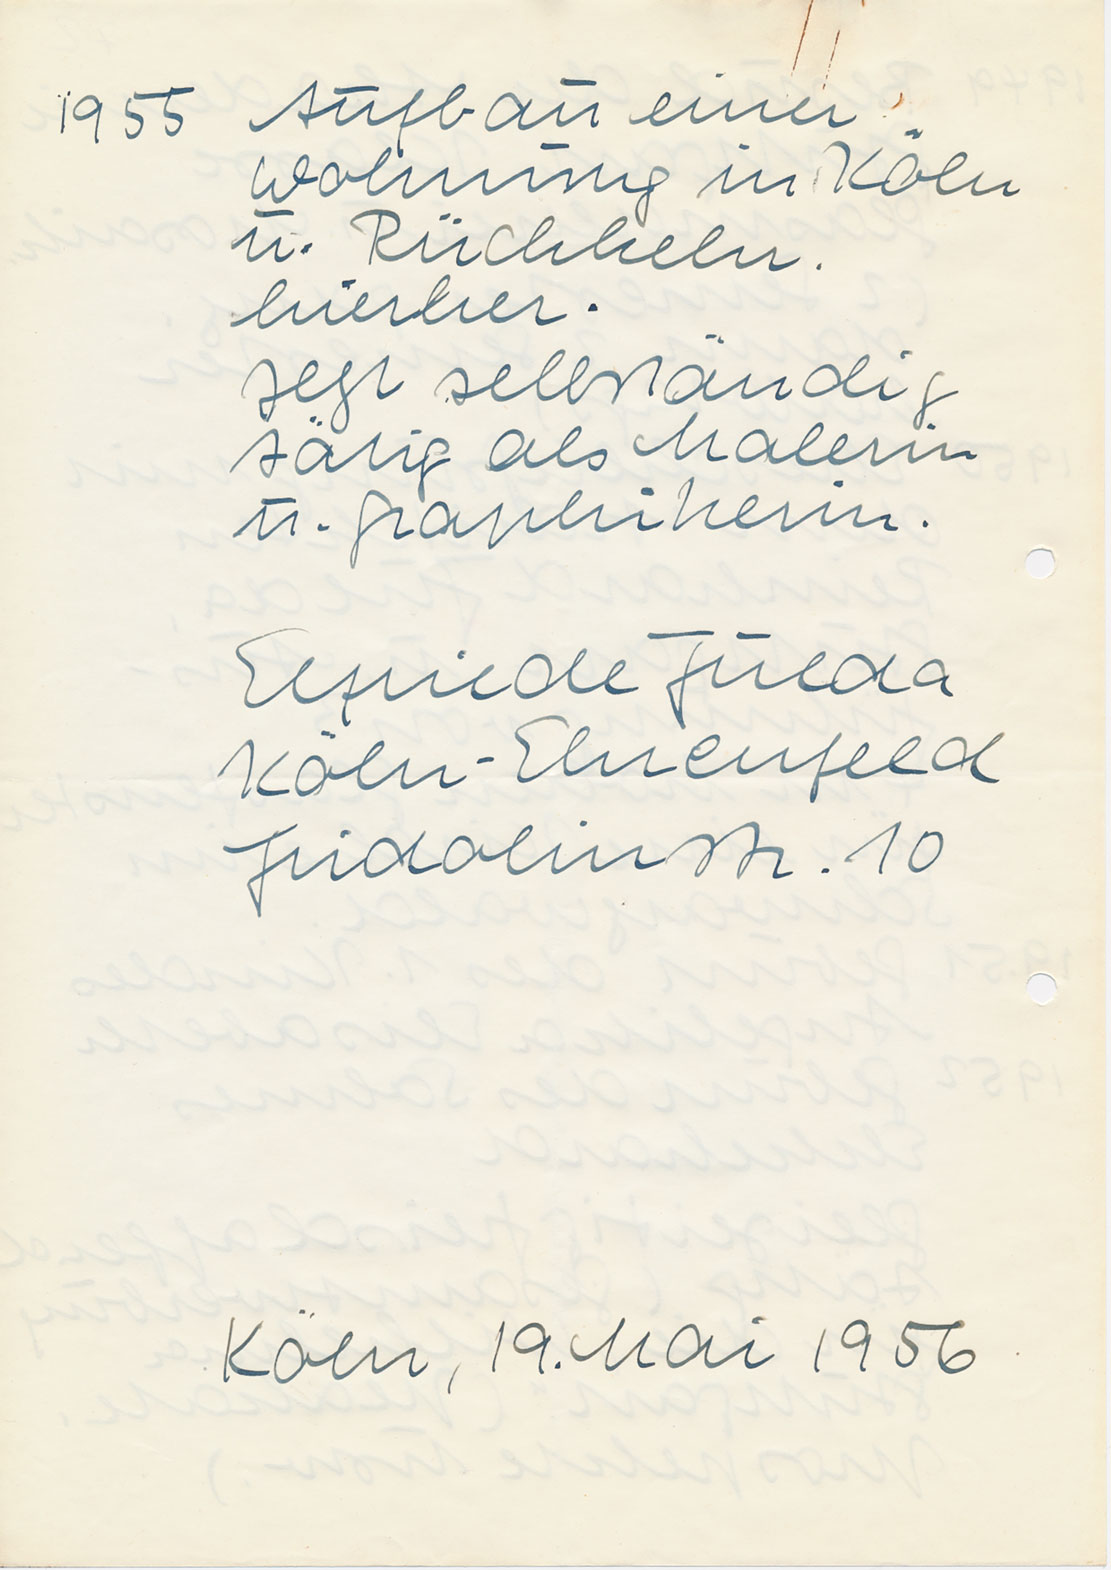 1955 Aufbau einer
Wohnung in Köln
u. Rückkehr.
hierher.
jetzt selbständig
tätig als Malerin
u. Graphikerin.
Elfriede Fulda
Köln-Ehrenfeld
Fridolinstr. 10
Köln, 19. Mai 1956